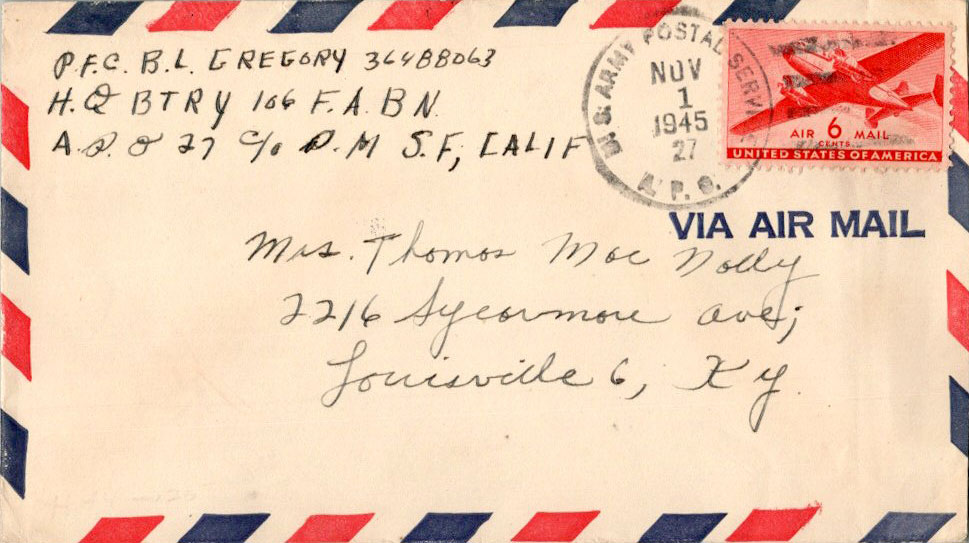 P.F.C. B.L. GREGORY 36488063
H.Q BTRY 106 F.A. BN.
A.P.O 27 C/O P.M S.F, CALIF
U.S. ARMY POSTAL SERVICE
NOV
1
1945
27
A.P.S.
AIR 6 MAIL
CENTS
UNITED STATES OF AMERICA
VIA AIR MAIL
Mrs. Thomas Mac Nolly
2216 Sycormore ave;
Louisville 6, Ky.